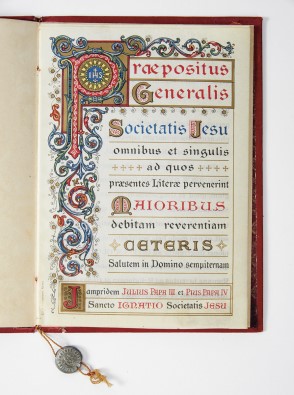 Præpositus
Generalis
Societatis Jesu
omnibus et singulis
ad quos
præsentes Literæ pervenerint
MAIORIBUS
debitam reverentiam
CETERIS
Salutem in Domino sempiternam
Jampridem JULIUS PAPA III et PIUS PAPA IV
Sancto IGNATIO Societatis JESU